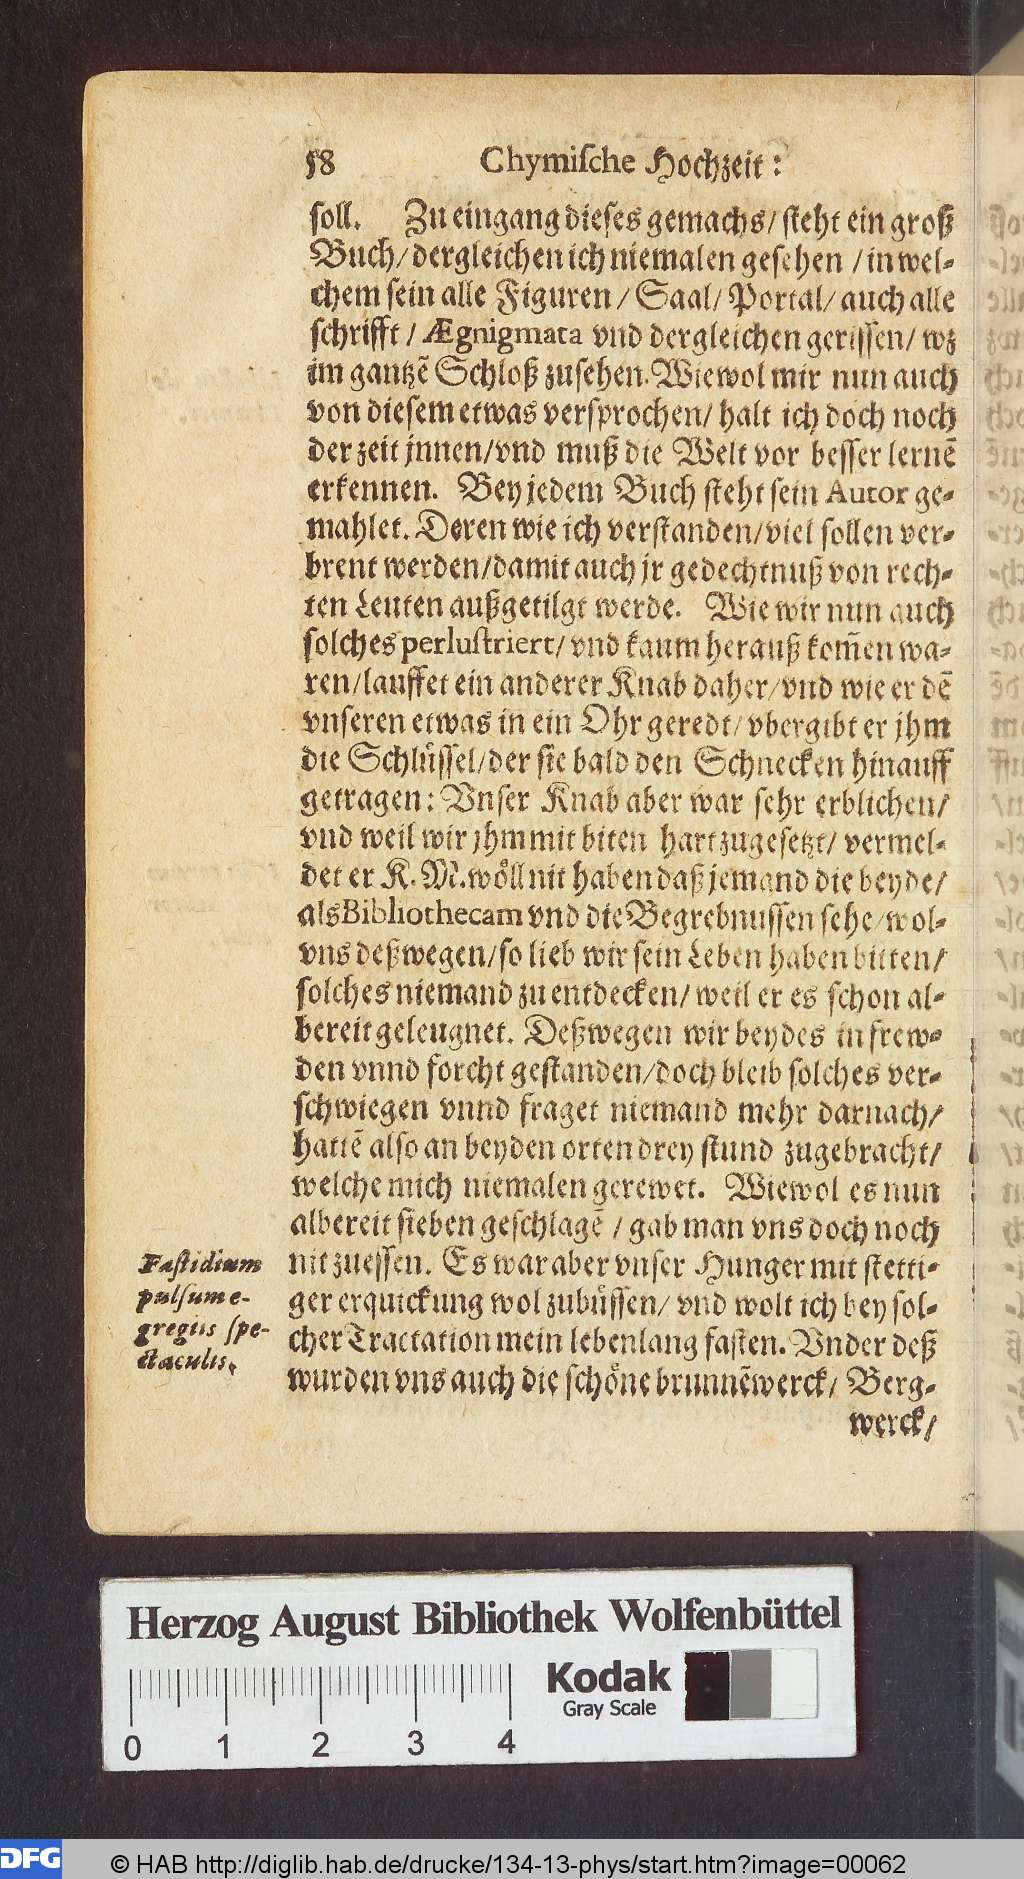 58 Chymische Hochzeit:
soll. Zu eingang dieses gemachs/ steht ein groß
Buch/ dergleichen ich niemalen gesehen / in wel-
chem sein alle Figuren / Saal/ Portal/ auch alle
schrifft / Ægnigmata vnd dergleichen gerissen/ wz
im gantzẽ Schloß zusehen. Wiewol mir nun auch
von diesem etwas versprochen/ halt ich doch noch
der zeit jnnen/ vnd muß die Welt vor besser lernẽ
erkennen. Bey jedem Buch steht sein Autor ge-
mahlet. Deren wie ich verstanden/ viel sollen ver-
brent werden/ damit auch jr gedechtnuß von rech-
ten Leuten außgetilgt werde. Wie wir nun auch
solches perlustriert/ vnd kaum herauß kom̃en wa-
ren/ lauffet ein anderer Knab daher/ vnd wie er dẽ
vnseren etwas in ein Ohr geredt/ vbergibt er jhm
die Schlüssel/ der sie bald den Schnecken hinauff
getragen: Vnser Knab aber war sehr erblichen/
vnd weil wir jhm mit biten hart zugesetzt/ vermel-
det er K. M. wöll nit haben daß jemand die beyde/
als Bibliothecam vnd die Begrebnussen sehe/ wol-
vns deßwegen/ so lieb wir sein Leben haben bitten/
solches niemand zu entdecken/ weil er es schon al-
bereit geleugnet. Deßwegen wir beydes in frew-
den vnnd forcht gestanden/ doch bleib solches ver-
schwiegen vnnd fraget niemand mehr darnach/
hattẽ also an beyden orten drey stund zugebracht/
welche mich niemalen gerewet. Wiewol es nun
albereit sieben geschlagẽ / gab man vns doch noch
nit zuessen. Es war aber vnser Hunger mit stetti-
ger erquickung wol zubüssen/ vnd wolt ich bey sol-
cher Tractation mein lebenlang fasten. Vnder deß
wurden vns auch die schöne brunnẽwerck/ Berg-
werck/
Fastidium
pulsum e-
gregiis spe-
ctaculis.
Herzog August Bibliothek Wolfenbüttel
Kodak
Gray Scale
0 1 2 3 4
DFG © HAB http://diglib.hab.de/drucke/134-13-phys/start.htm?image=00062